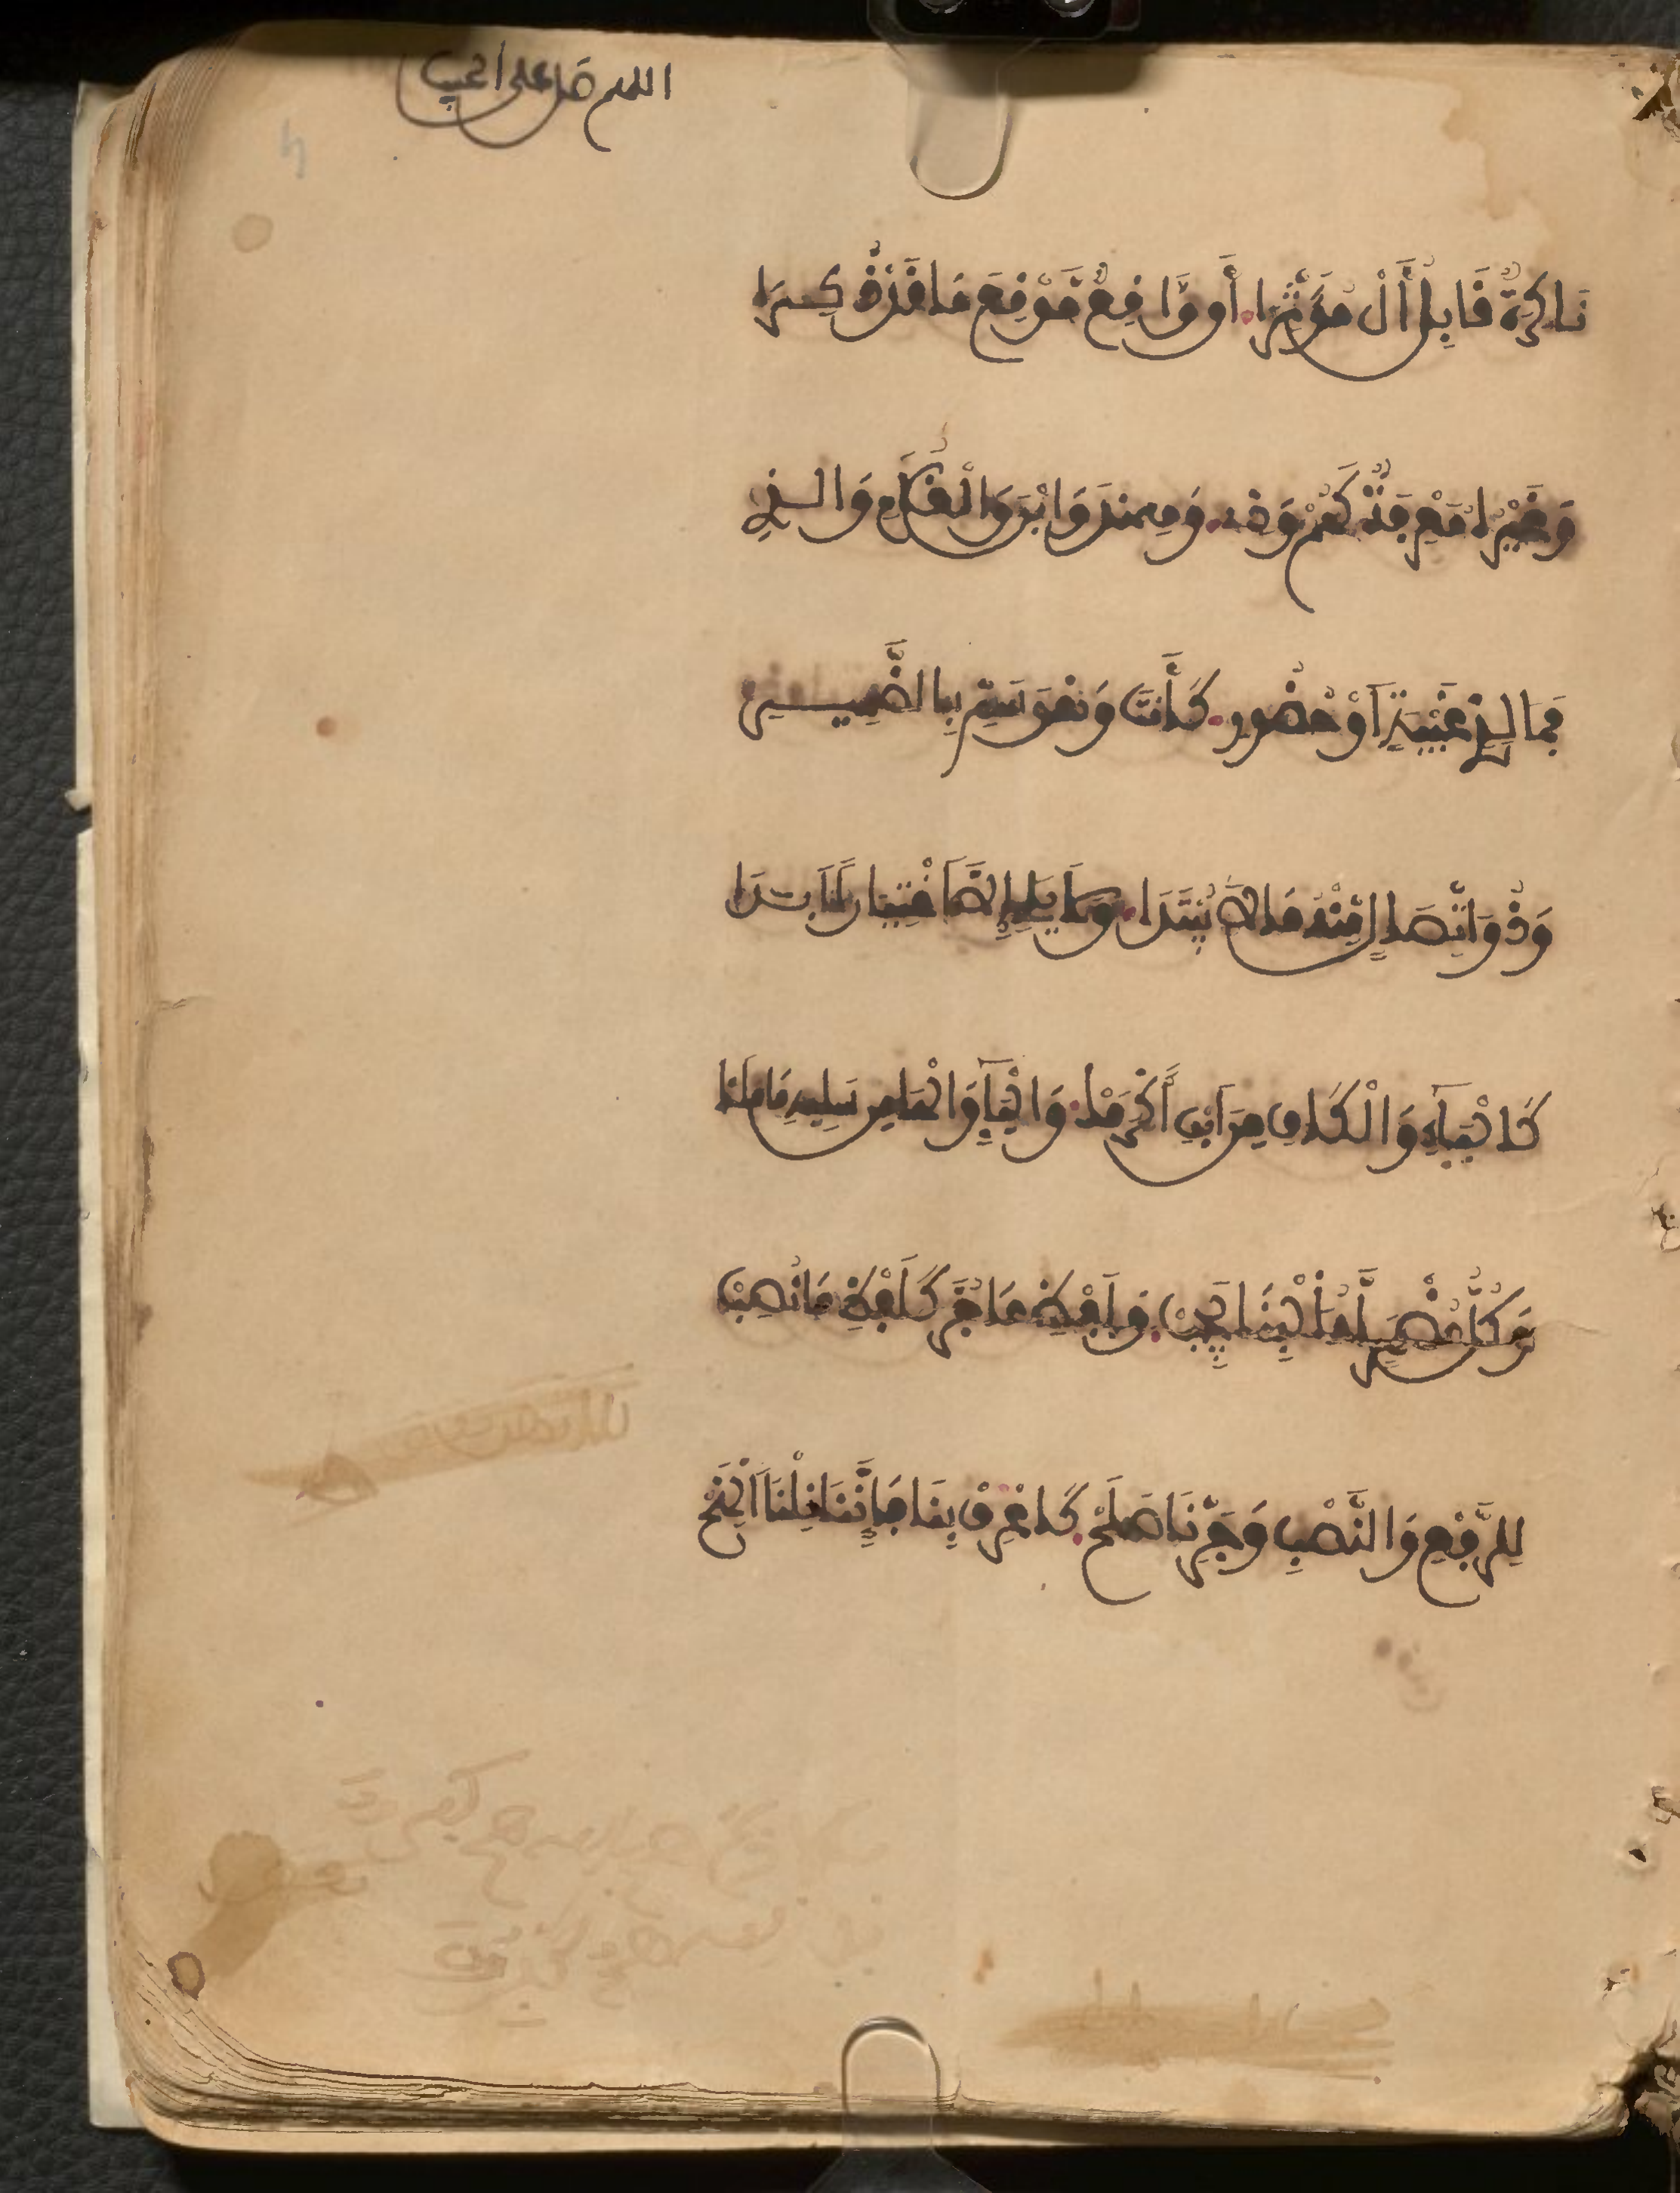 اللهم صل على الحبيب
نَاكِرَةٌ قَابِلُ أَلْ مُؤَثِّرَا أَو وَّاقِعٌ مَّوْقِعَ مَا قَدْ ذُكِرَا
وَغَيْرُهُ مَعْرِفَةٌ كَهُمْ وَذِي وَهِنْدَ وَابْنِ وَالْغُلَامِ وَالذِي
فَمَا لِذِي غَيْبَةٍ أَوْ حُضُورِ كَأَنتَ وَهْوَ سَمِّ بِالضَّمِيرِ
وَذُو اتِّصَالٍ مِّنْهُ مَا لَا يُبْتَدَا وَلَا يَلِي إِلَّا اخْتِيَارًا أَبَدَا
كَالْيَاءِ وَالْكَافِ مِنَ ابْنِي أَكْرَمَكْ وَالْيَاءِ وَالْهَا مِن سَلِيهِ مَا مَلَكْ
وَكُلُّ مُضْمَرٍ لَّهُ الْبِنَا يَجِبْ وَلَفْظُ مَا جُرَّ كَلَفْظِ مَا نُصِبْ
لِلرَّفْعِ وَالنَّصْبِ وَجَرٍّ نَا صَلَحْ كَاعْرِفْ بِنَا فَإِنَّنَا نِلْنَا الْمِنَحْ